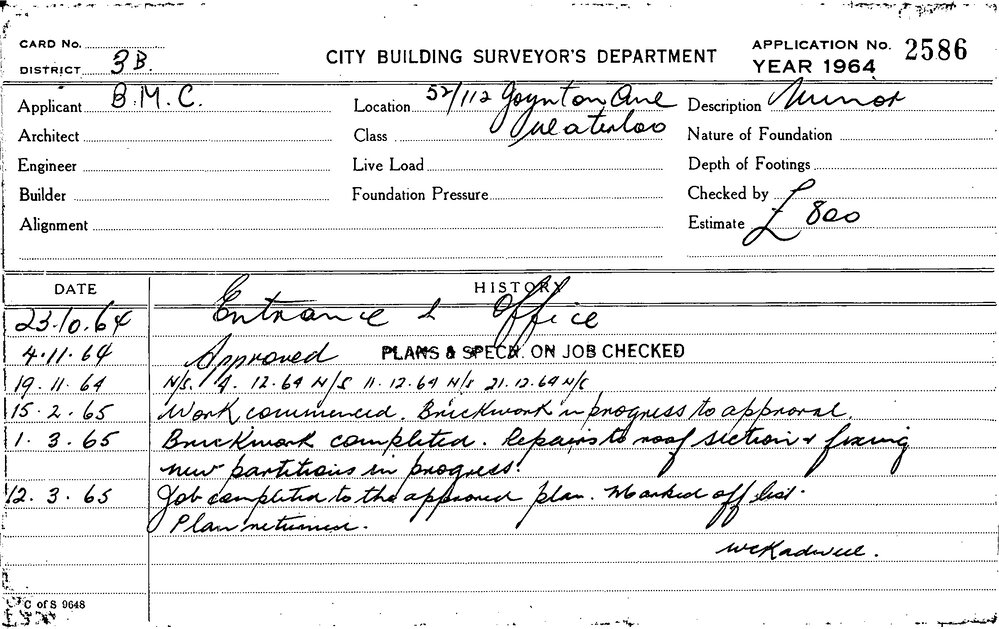 CARD No.
DISTRICT 3B.
CITY BUILDING SURVEYOR'S DEPARTMENT
APPLICATION No. 2586
YEAR 1964
Applicant B.M.C.
Location 52/112 Joynton Ave
Waterloo
Description Minor
Architect
Class
Nature of Foundation
Engineer
Live Load
Depth of Footings
Builder
Foundation Pressure
Checked by
Alignment
Estimate £800
DATE HISTORY
23.10.64 Entrance & Office
4.11.64 Approved PLANS & SPECN. ON JOB CHECKED
19.11.64 N/S. 4.12.64 N/S 11.12.64 N/S 21.12.64 N/S
15.2.65 Work commenced. Brickwork in progress to approval.
1.3.65 Brickwork completed. Repairs to roof section & fixing
new partitions in progress.
12.3.65 Job completed to the approved plan. Marked off list.
Plan returned.
WCKadwell.
C of S 9648